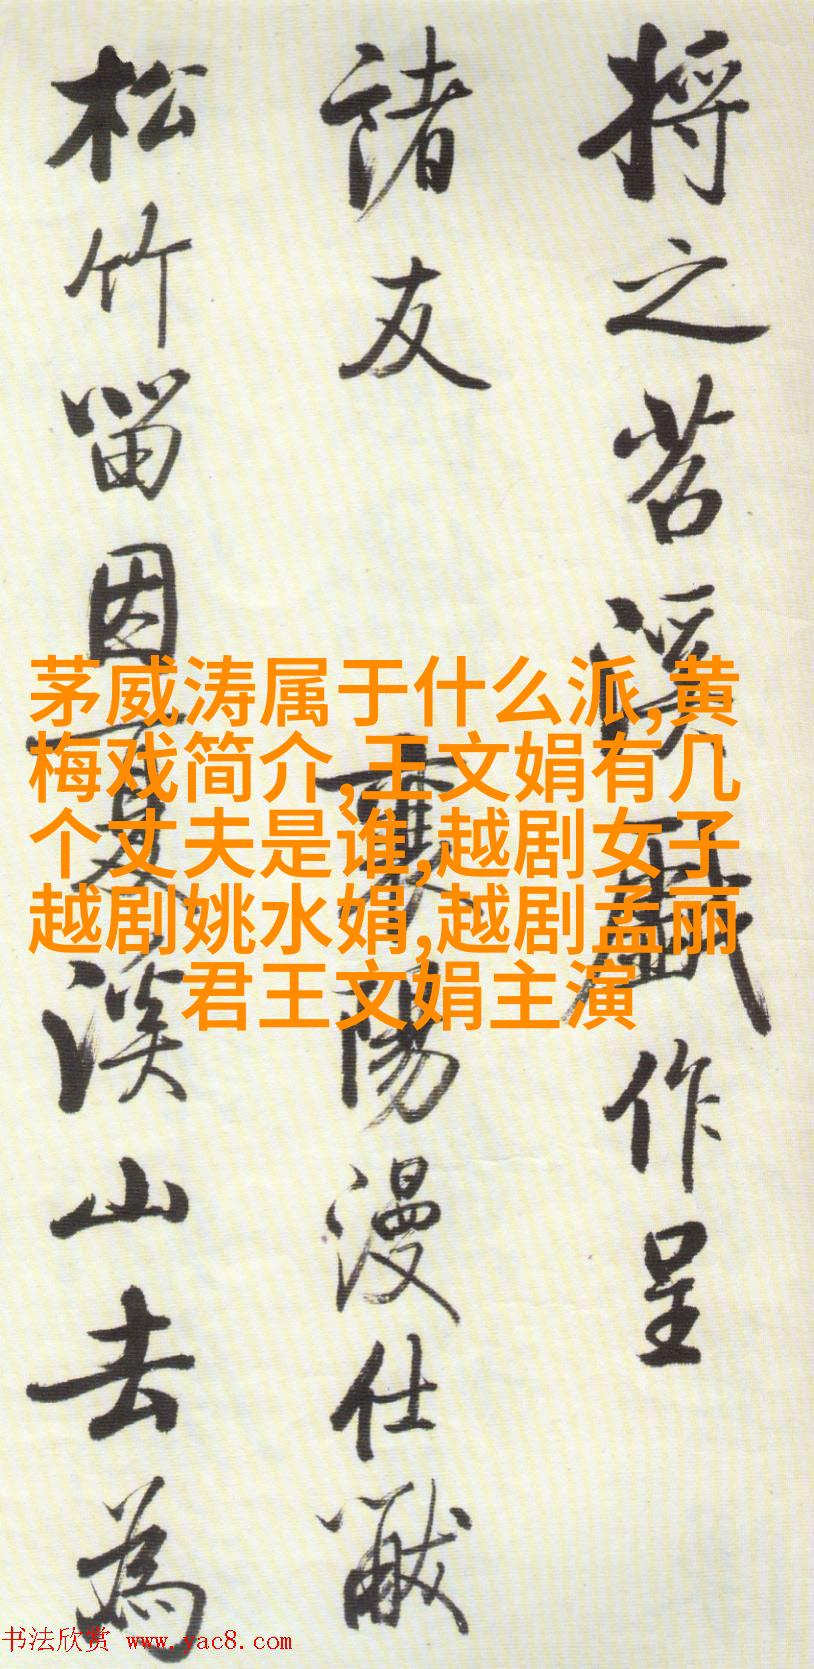 将之苕溪戲作呈
諸友
襄陽漫仕黻
松竹留因夏溪山去為
茅威涛属于什么派,黄
梅戏简介,王文娟有几
个丈夫是谁,越剧女子
越剧姚水娟,越剧孟丽
君王文娟主演
书法欣赏 www.yac8.com